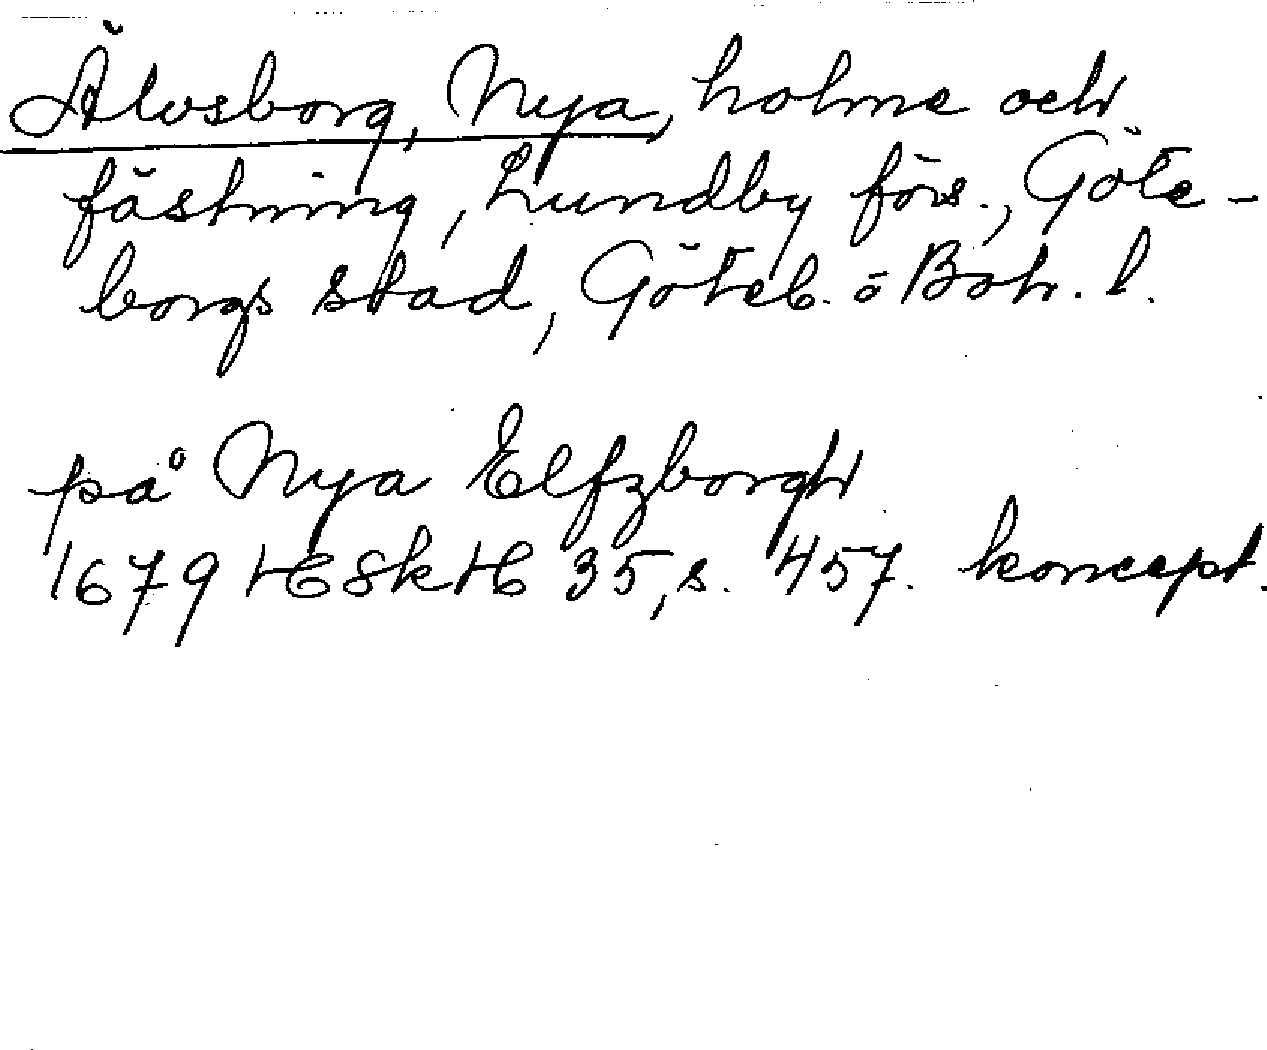 Älvsborg, Nya, holme och
fästning, Lundby förs., Göte-
borgs stad, Göteb. o Boh. l.
på Nya Elfzborgh
1679 HSkH 35, s. 457. koncept.